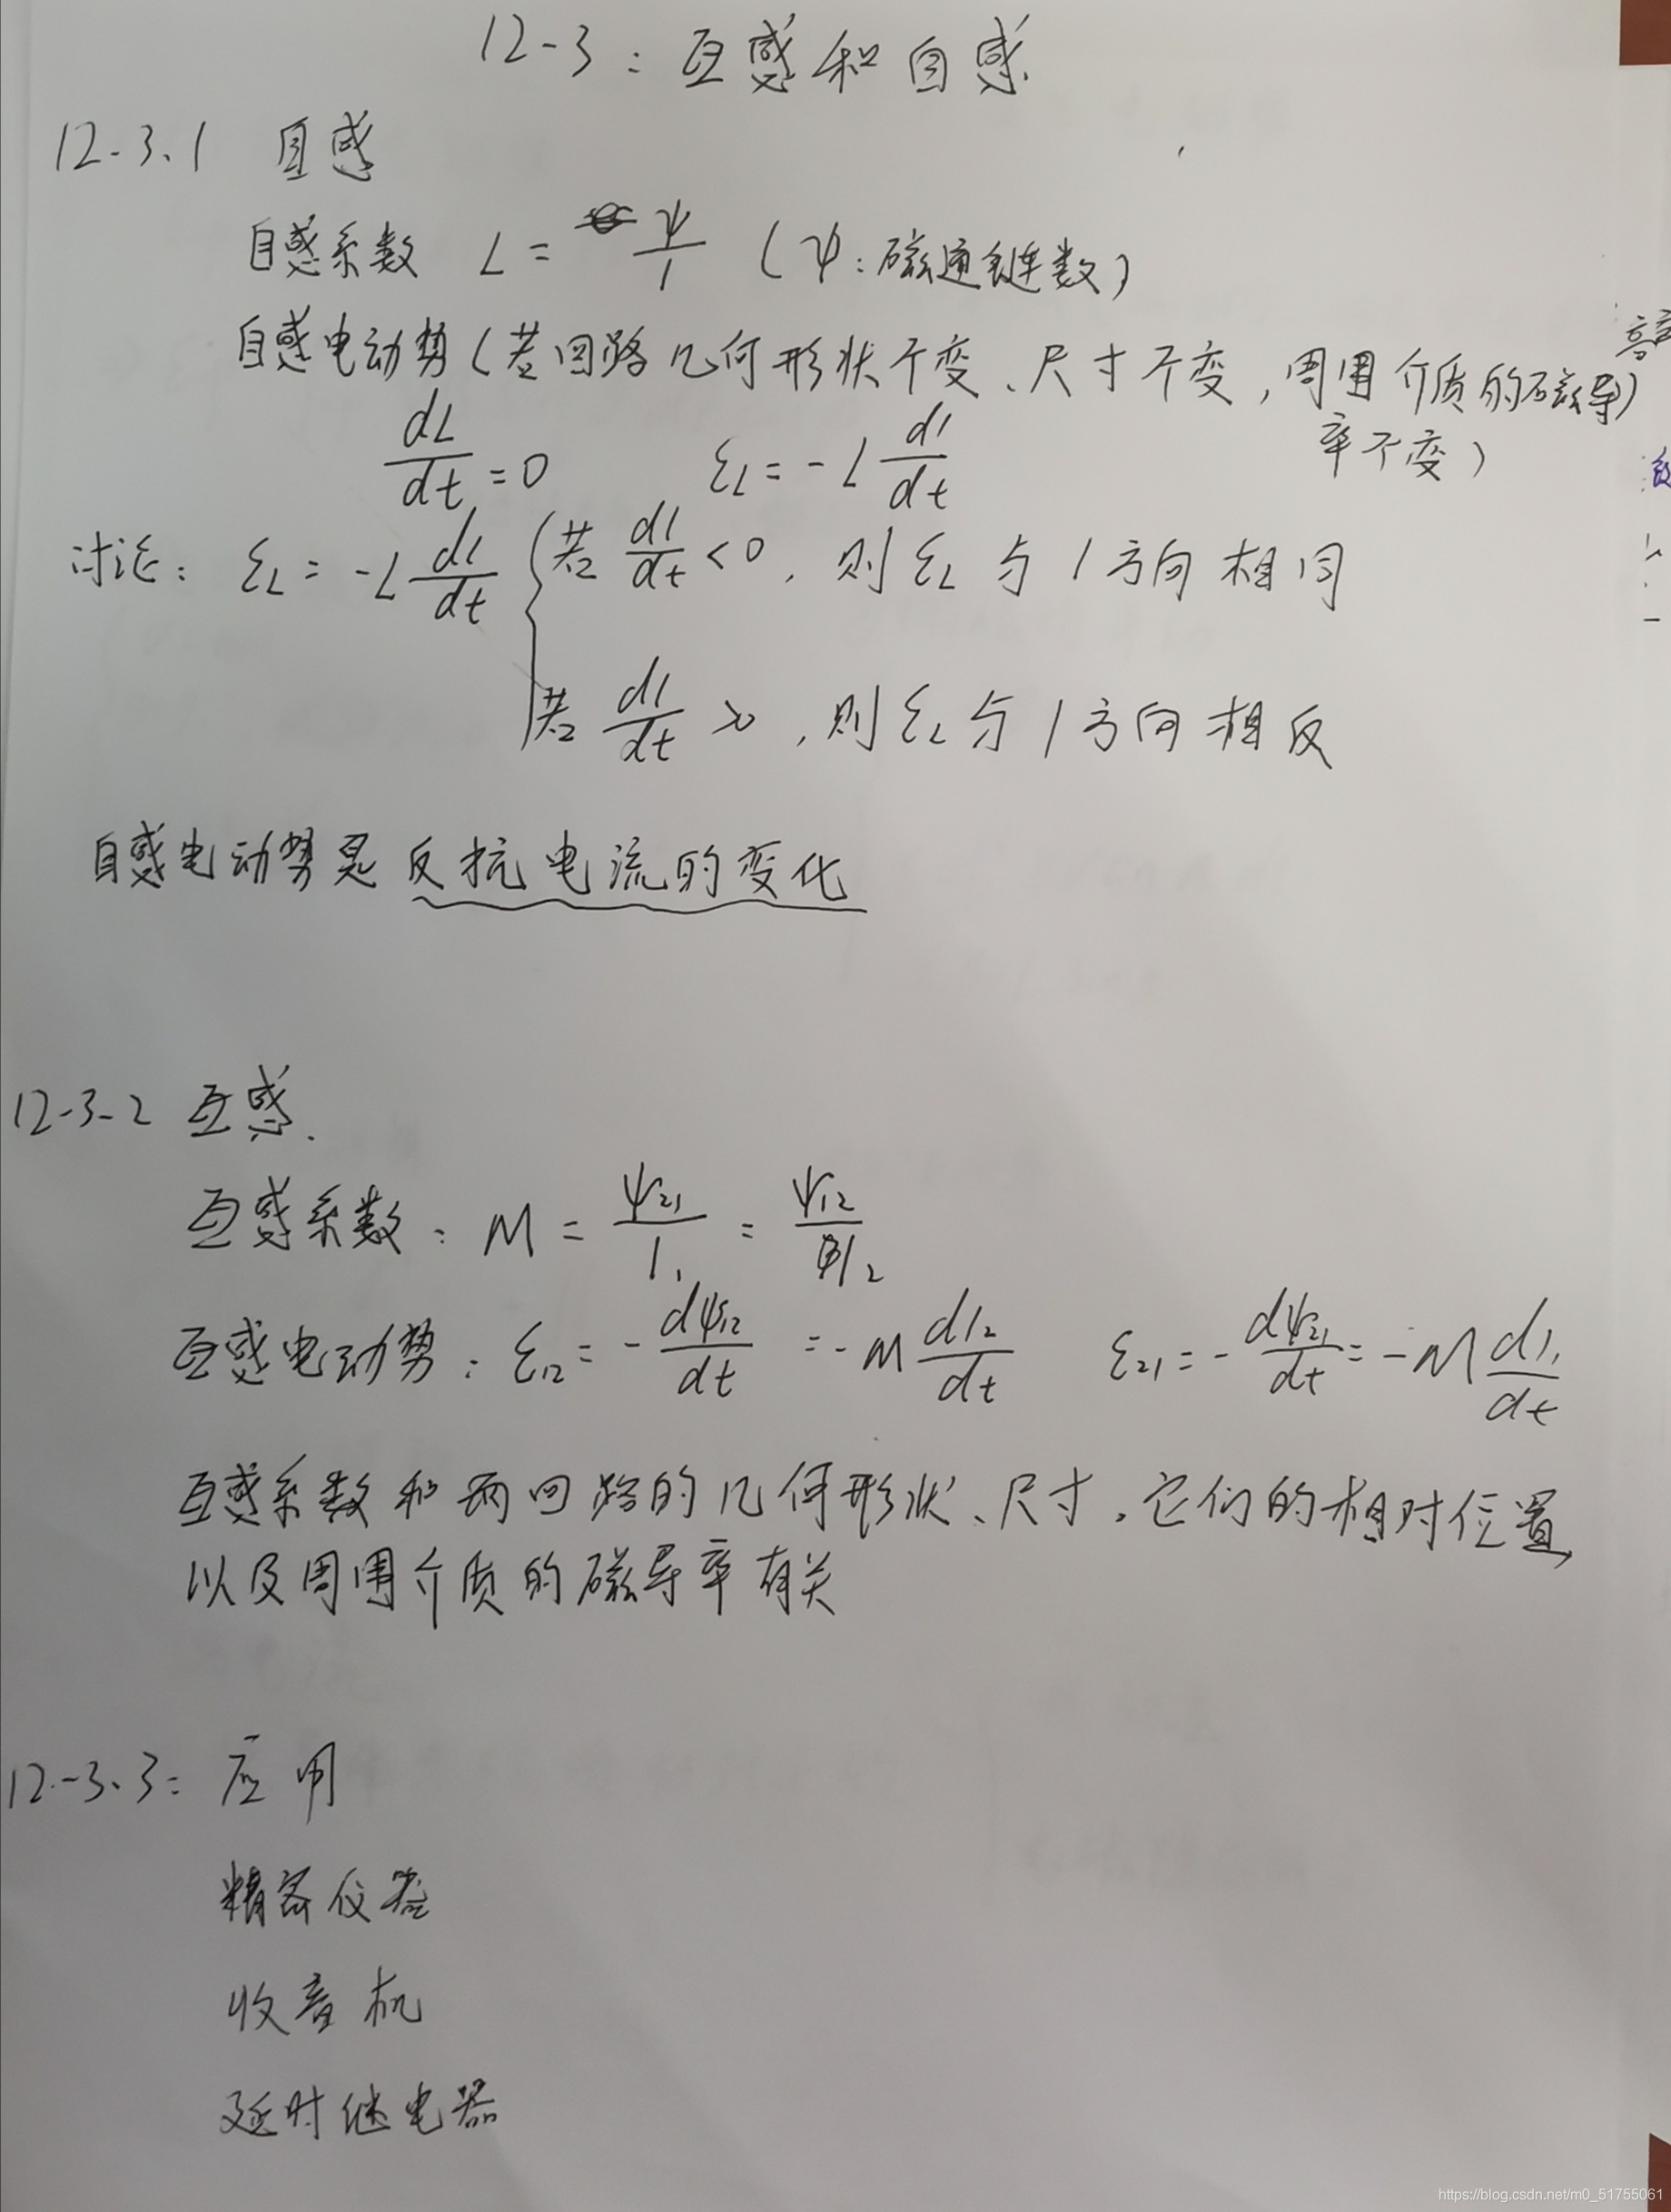 12-3：互感和自感
12-3.1 自感
自感系数 L = ψ/I （ψ：磁通链数）
自感电动势（若回路几何形状不变、尺寸不变，周围介质的磁导
率不变）
dL/dt = 0    ε_L = -L dI/dt
讨论：ε_L = -L dI/dt { 若 dI/dt < 0，则 ε_L 与 I 方向相同
若 dI/dt >0，则 ε_L 与 I 方向相反
自感电动势是反抗电流的变化
12-3-2 互感.
互感系数：M = ψ₂₁/I₁ = ψ₁₂/I₂
互感电动势：ε₁₂ = - dψ₁₂/dt = -M dI₂/dt    ε₂₁ = - dψ₂₁/dt = -M dI₁/dt
互感系数和两回路的几何形状、尺寸，它们的相对位置，
以及周围介质的磁导率有关
12-3.3：应用
精密仪器
收音机
延时继电器
https://blog.csdn.net/m0_51755061